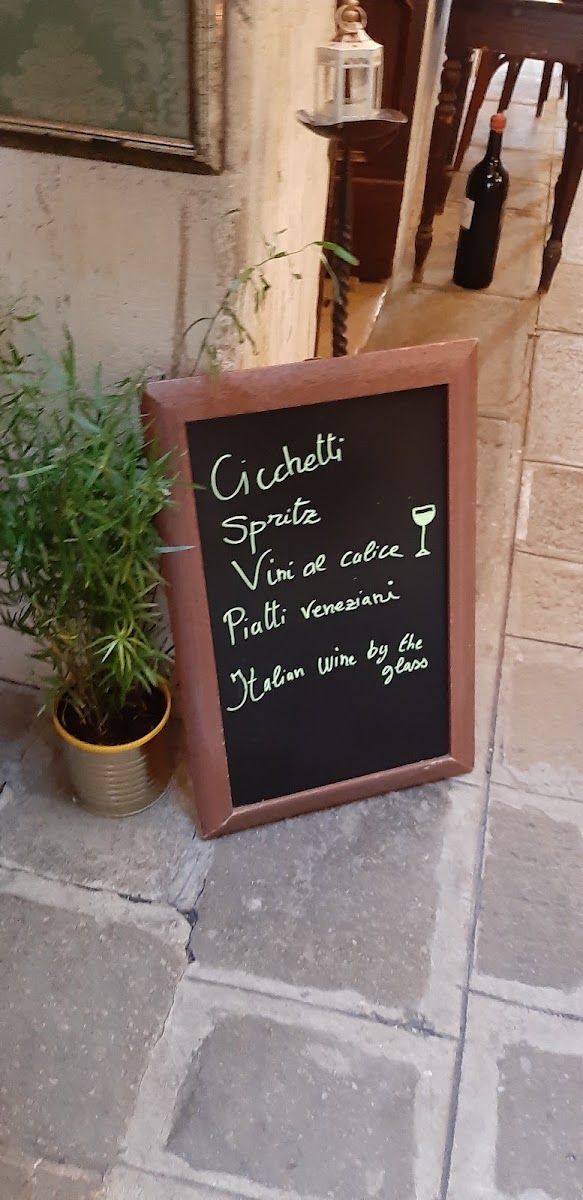 Cicchetti
Spritz
Vini al calice
Piatti veneziani
Italian wine by the
glass